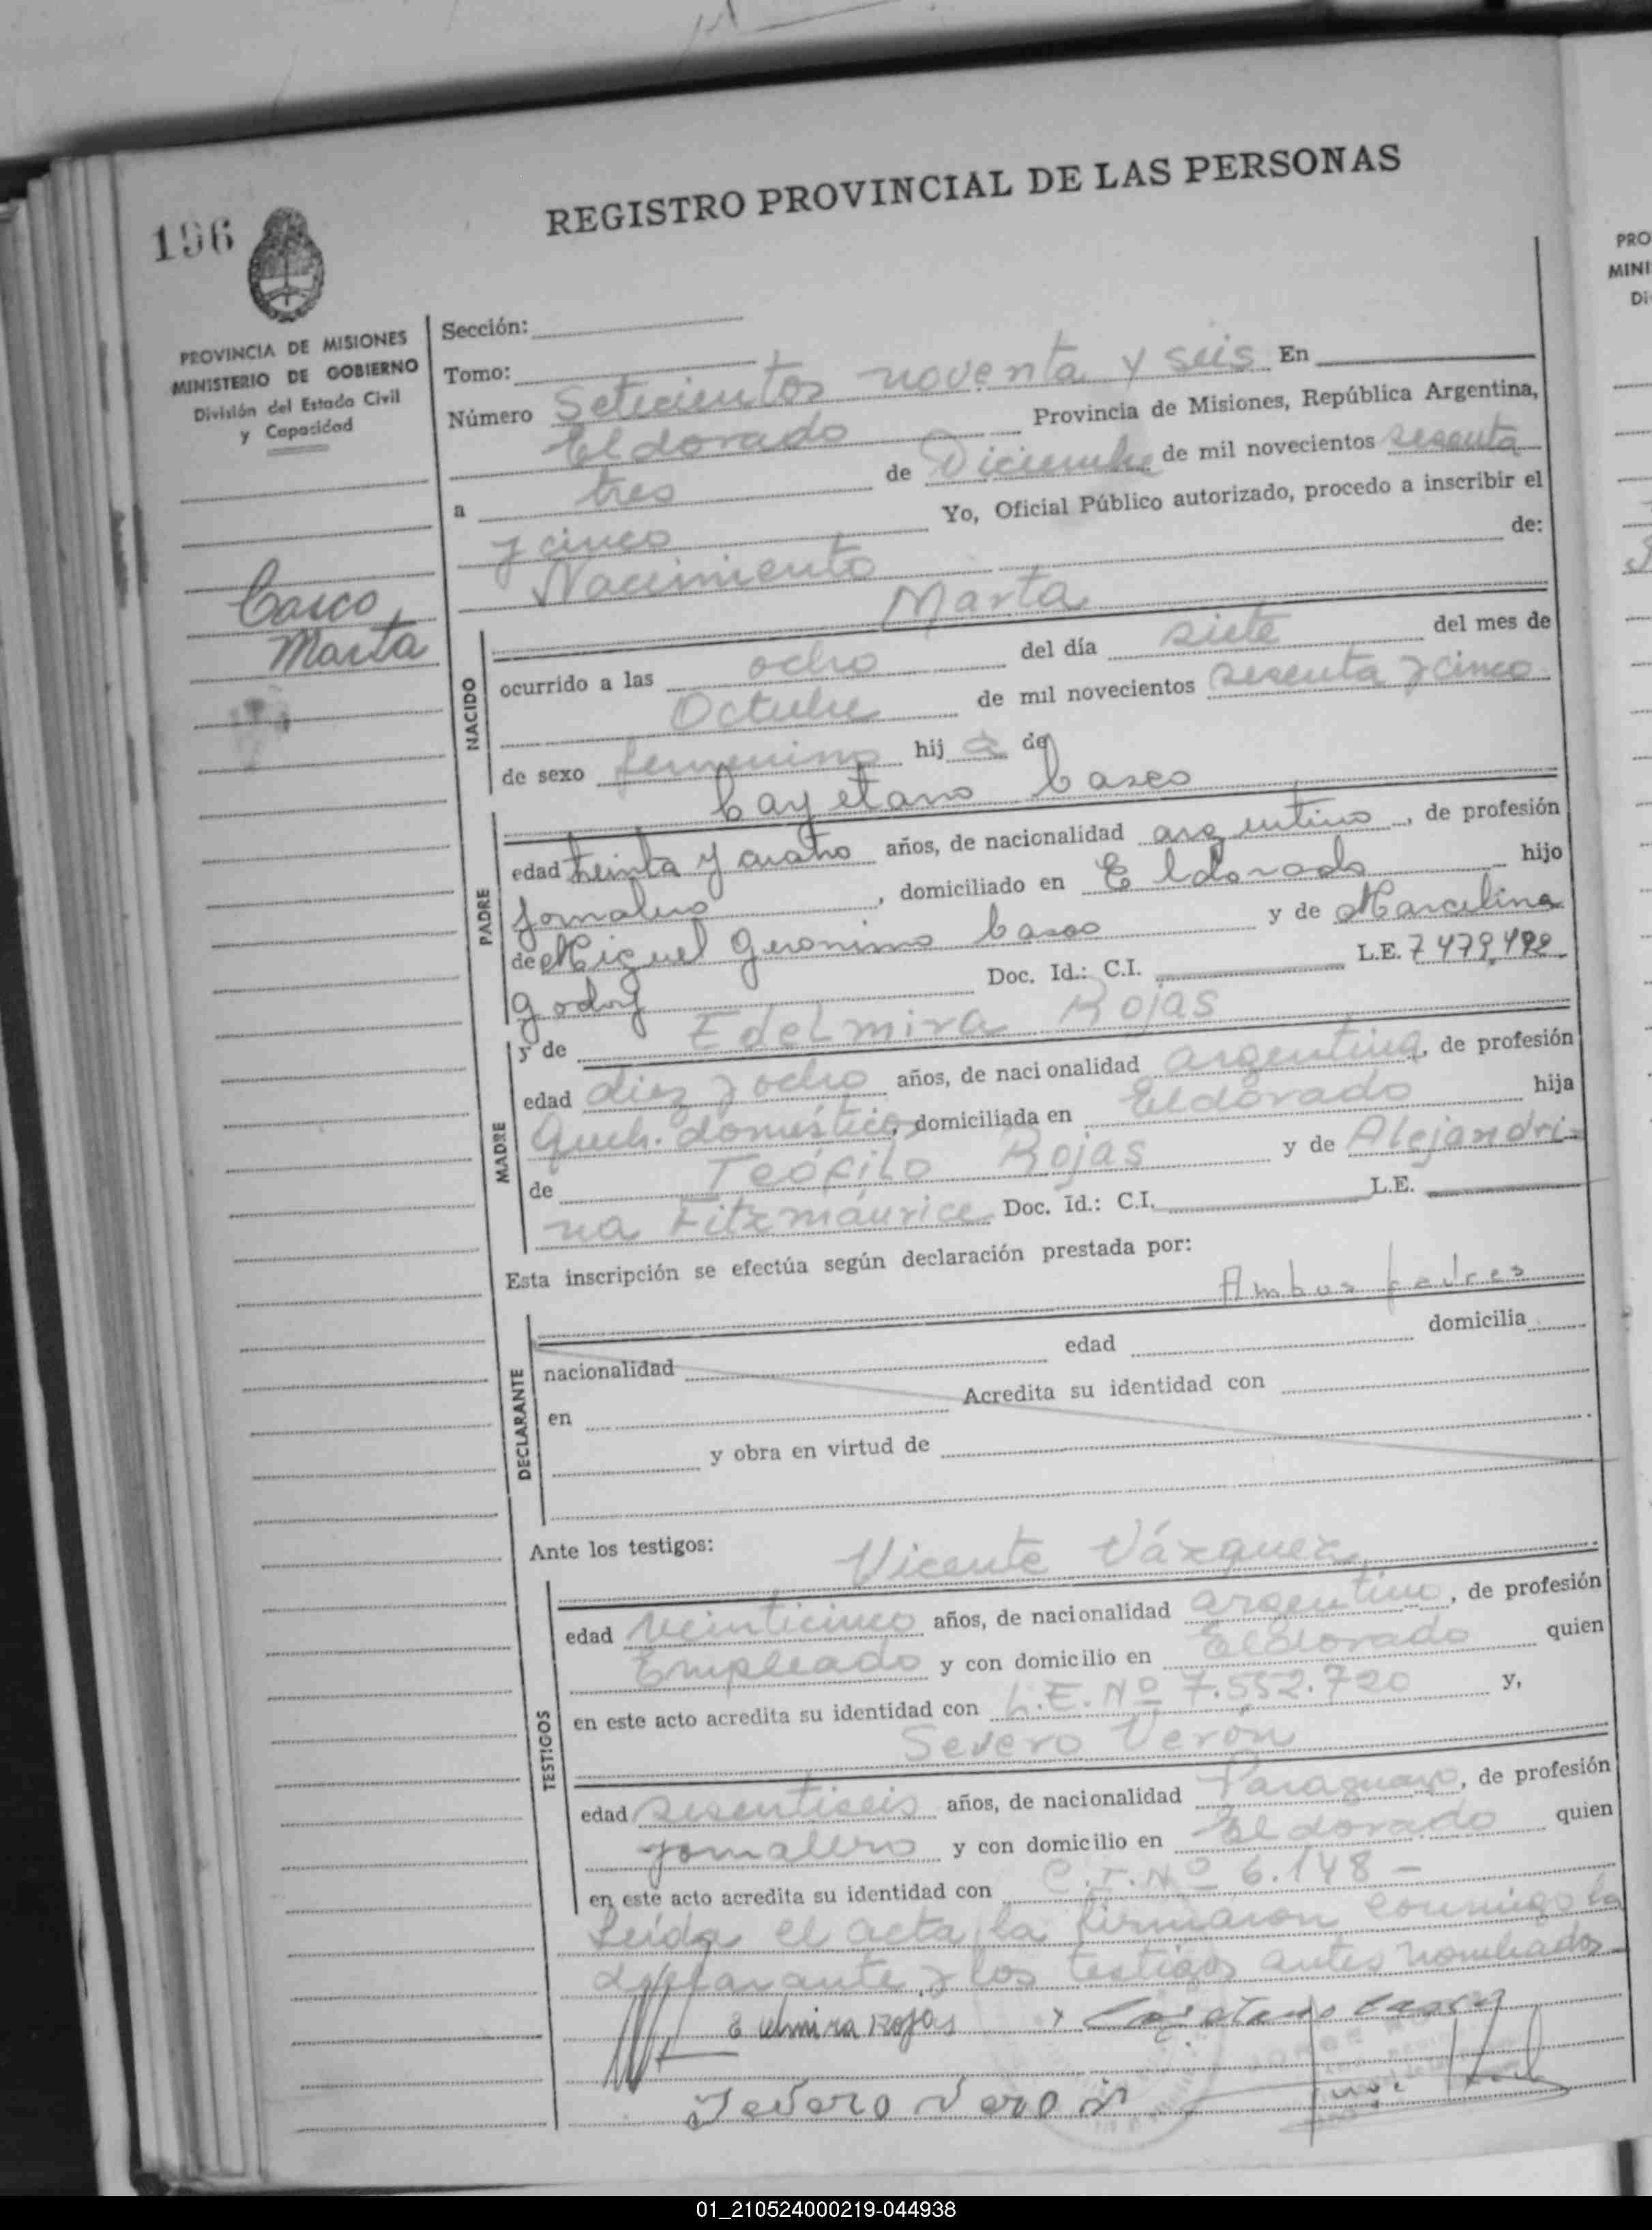 196
REGISTRO PROVINCIAL DE LAS PERSONAS
PROVINCIA DE MISIONES
MINISTERIO DE GOBIERNO
División del Estado Civil
y Capacidad
Casco
Marta
Sección:
Tomo:
Número Setecientos noventa y seis En
Eldorado Provincia de Misiones, República Argentina,
a tres de Diciembre de mil novecientos sesenta
y cinco Yo, Oficial Público autorizado, procedo a inscribir el
Nacimiento de:
NACIDO
Marta
ocurrido a las ocho del día siete del mes de
Octubre de mil novecientos sesenta y cinco
de sexo femenino hij a de
PADRE
Cayetano Casco
edad treinta y cuatro años, de nacionalidad argentino, de profesión
Jornalero, domiciliado en Eldorado hijo
de Miguel Geronimo Casco y de Marcelina
Godoy Doc. Id.: C.I. L.E. 7479.492
MADRE
y de Edelmira Rojas
edad diez y ocho años, de nacionalidad argentina, de profesión
Queh. domésticos, domiciliada en Eldorado hija
de Teófilo Rojas y de Alejandri-
na Fitzmaurice Doc. Id.: C.I. L.E.
Esta inscripción se efectúa según declaración prestada por:
Ambos padres
DECLARANTE
nacionalidad edad domicilia
en Acredita su identidad con
y obra en virtud de
Ante los testigos:
TESTIGOS
Vicente Vázquez
edad veinticinco años, de nacionalidad argentino, de profesión
Empleado y con domicilio en Eldorado quien
en este acto acredita su identidad con L.E. Nº 7.552.720 y,
Severo Verón
edad sesentiseis años, de nacionalidad Paraguayo, de profesión
Jornalero y con domicilio en Eldorado quien
en este acto acredita su identidad con C.I. Nº 6.148 -
Leída el acta, la firmaron conmigo la
declarante y los testigos antes nombrados
Edelmira Rojas x Cayetano Casco
Severo Veron
PRO
MINI
Di
01_210524000219-044938